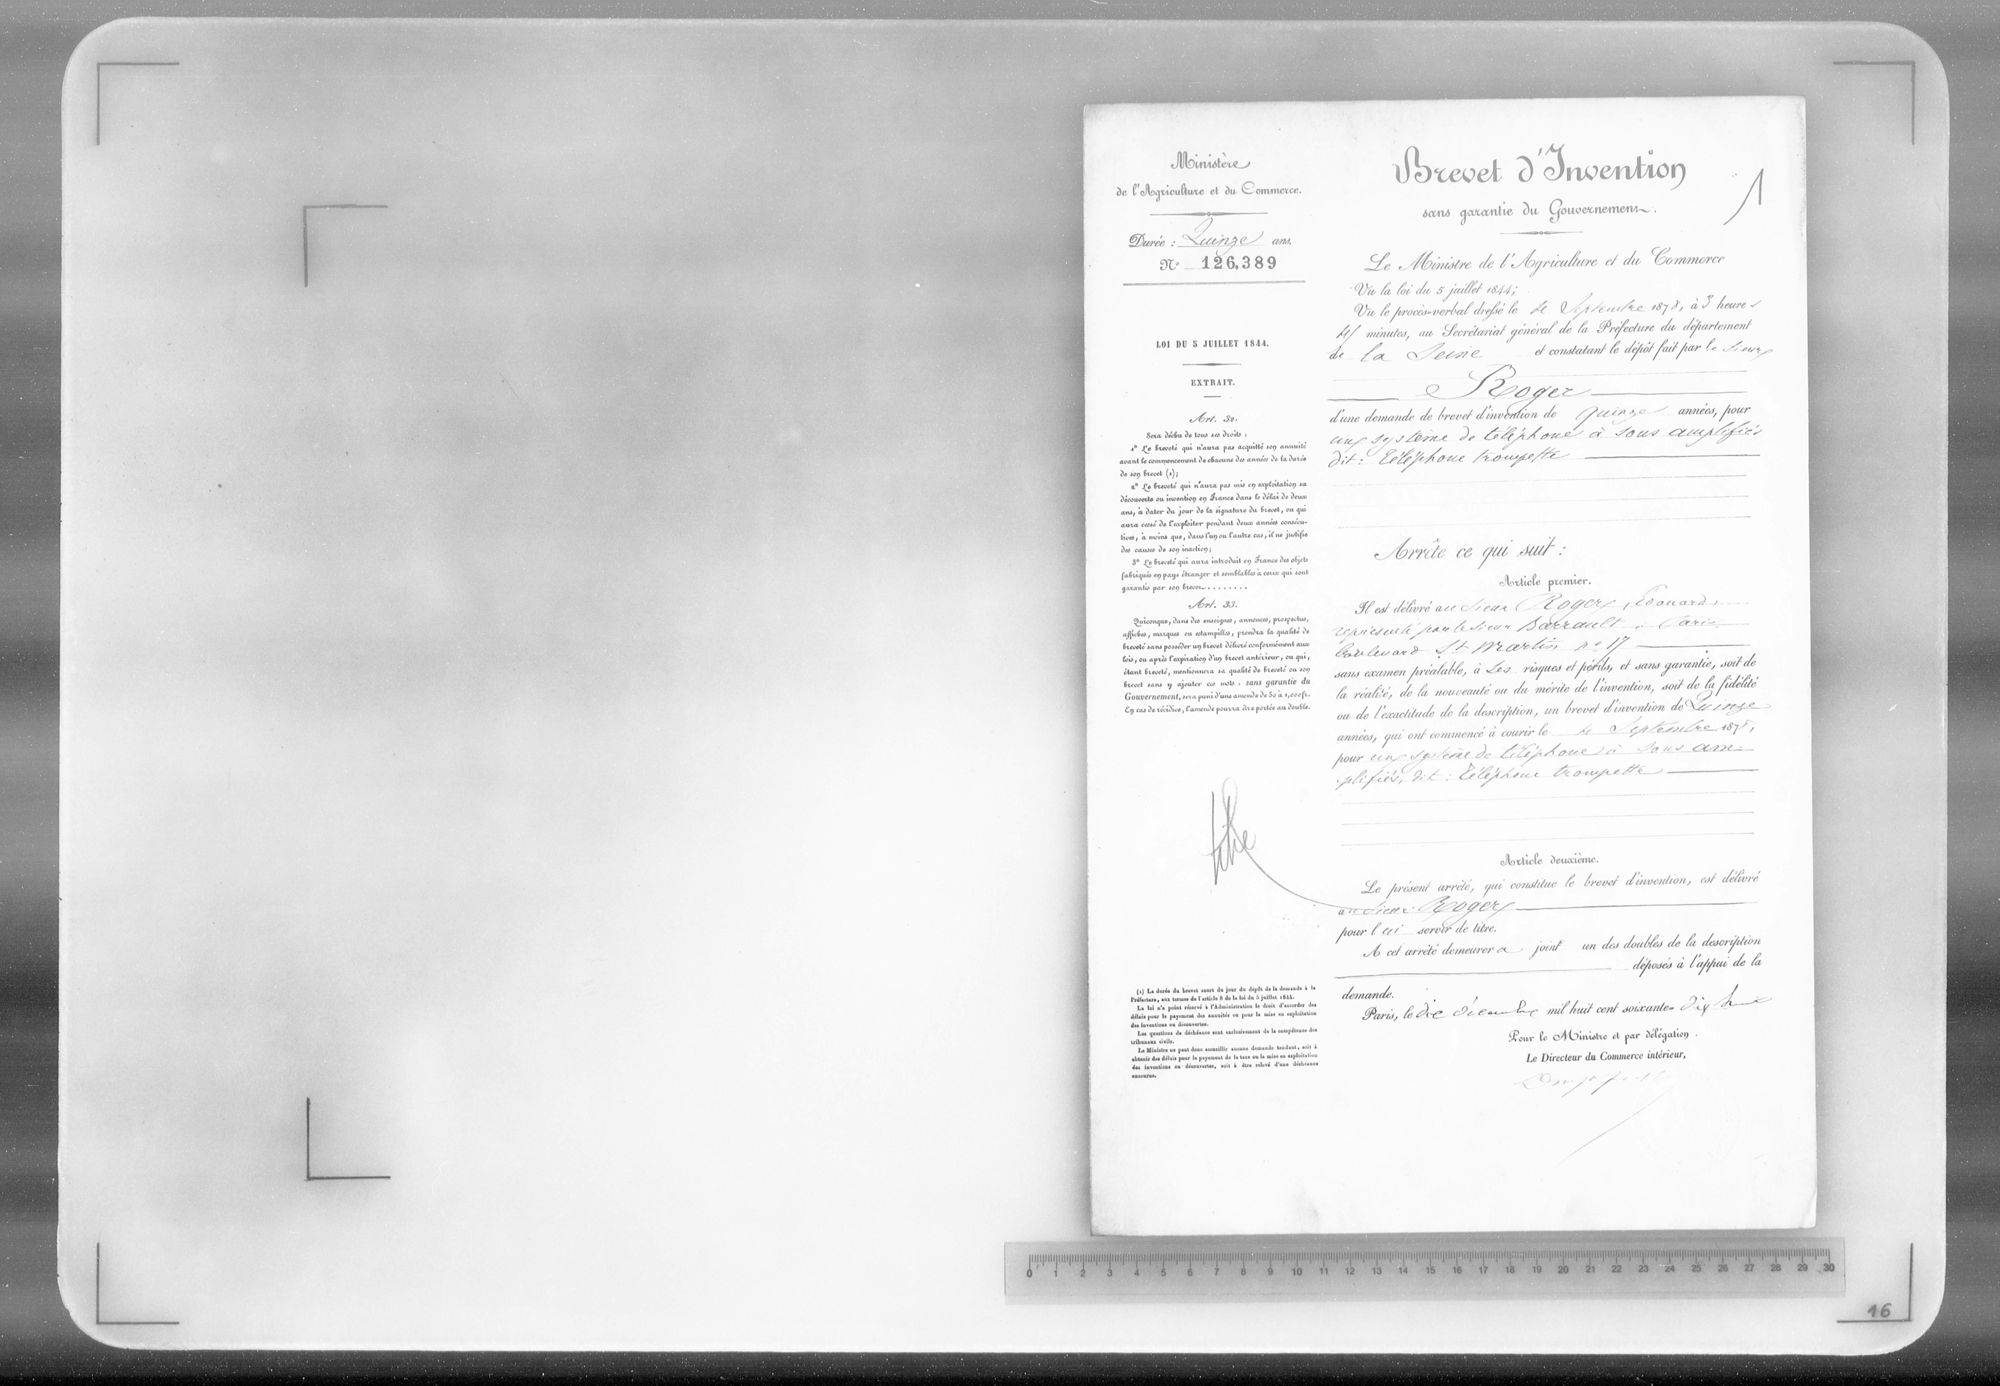 Ministère
de l'Agriculture et du Commerce.
Durée : Quinze ans.
N° 126,389
LOI DU 5 JUILLET 1844.
EXTRAIT.
Art. 32.
Sera déchu de tous ses droits :
1° Le breveté qui n'aura pas acquitté son annuité
avant le commencement de chacune des années de la durée
de son brevet (1);
2° Le breveté qui n'aura pas mis en exploitation sa
découverte ou invention en France dans le délai de deux
ans, à dater du jour de la signature du brevet, ou qui
aura cessé de l'exploiter pendant deux années consécu-
tives, à moins que, dans l'un ou l'autre cas, il ne justifie
des causes de son inaction;
3° Le breveté qui aura introduit en France des objets
fabriqués en pays étranger et semblables à ceux qui sont
garantis par son brevet........
Art. 33.
Quiconque, dans des enseignes, annonces, prospectus,
affiches, marques ou estampilles, prendra la qualité de
breveté sans posséder un brevet délivré conformément aux
lois, ou après l'expiration d'un brevet antérieur, ou qui,
étant breveté, mentionnera sa qualité de breveté ou son
brevet sans y ajouter ces mots : sans garantie du
Gouvernement, sera puni d'une amende de 50 à 1,000 fr.
En cas de récidive, l'amende pourra être portée au double.
titre
(1) La durée du brevet court du jour du dépôt de la demande à la
Préfecture, aux termes de l'article 8 de la loi du 5 juillet 1844.
La loi n'a point réservé à l'Administration le droit d'accorder des
délais pour le payement des annuités ou pour la mise en exploitation
des inventions ou découvertes.
Les questions de déchéance sont exclusivement de la compétence des
tribunaux civils.
Le Ministre ne peut donc accueillir aucune demande tendant, soit à
obtenir des délais pour le payement de la taxe ou la mise en exploitation
des inventions ou découvertes, soit à être relevé d'une déchéance
encourue.
Brevet d'Invention
sans garantie du Gouvernement.
1
Le Ministre de l'Agriculture et du Commerce
Vu la loi du 5 juillet 1844;
Vu le procès-verbal dressé le Septembre 1878, à 3 heures
minutes, au Secrétariat général de la Préfecture du département
de la Seine et constatant le dépôt fait par le Sieur
Roger
d'une demande de brevet d'invention de quinze années, pour
un système de téléphone à sons amplifiés
dit : téléphone trompette
Arrête ce qui suit :
Article premier.
Il est délivré au Sieur Roger, Edouard,
représenté par le sieur Barrault, Paris
boulevard St Martin n° 17
sans examen préalable, à ses risques et périls, et sans garantie, soit de
la réalité, de la nouveauté ou du mérite de l'invention, soit de la fidélité
ou de l'exactitude de la description, un brevet d'invention de Quinze
années, qui ont commencé à courir le Septembre 1878,
pour un système de téléphone à sons am-
plifiés, dit : téléphone trompette
Article deuxième.
Le présent arrêté, qui constitue le brevet d'invention, est délivré
au Sieur Roger
pour lui servir de titre.
A cet arrêté demeurera joint un des doubles de la description
déposés à l'appui de la
demande.
Paris, le dix décembre mil huit cent soixante-dix huit
Pour le Ministre et par délégation.
Le Directeur du Commerce intérieur,
0 1 2 3 4 5 6 7 8 9 10 11 12 13 14 15 16 17 18 19 20 21 22 23 24 25 26 27 28 29 30
16